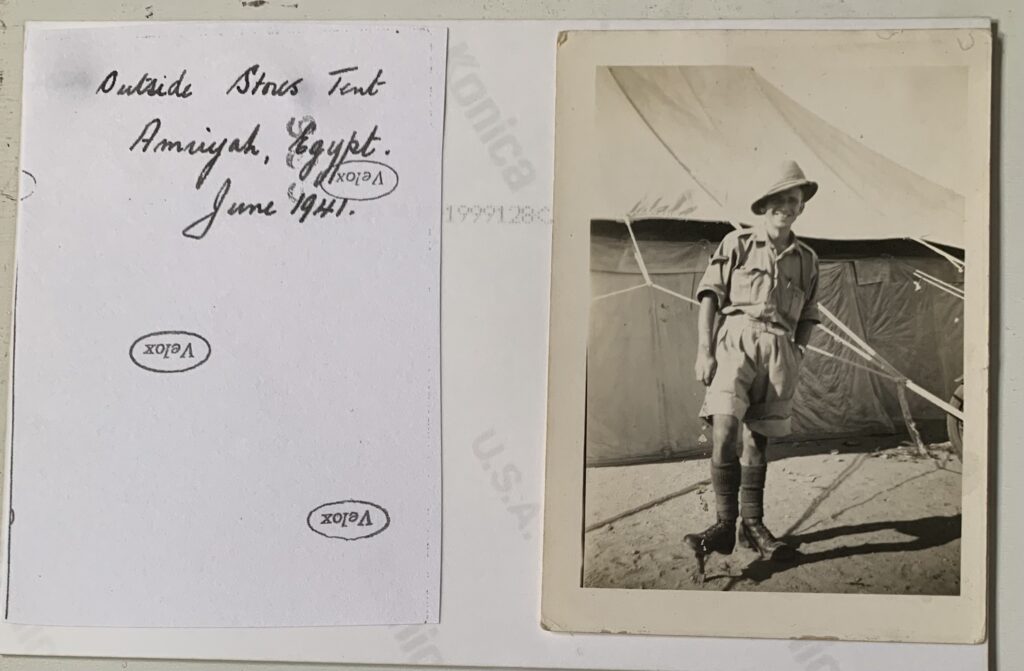 Outside Stores Tent
Amriyah, Egypt.
June 1941.
Velox
Velox
Velox
Konica
1999128
U.S.A.